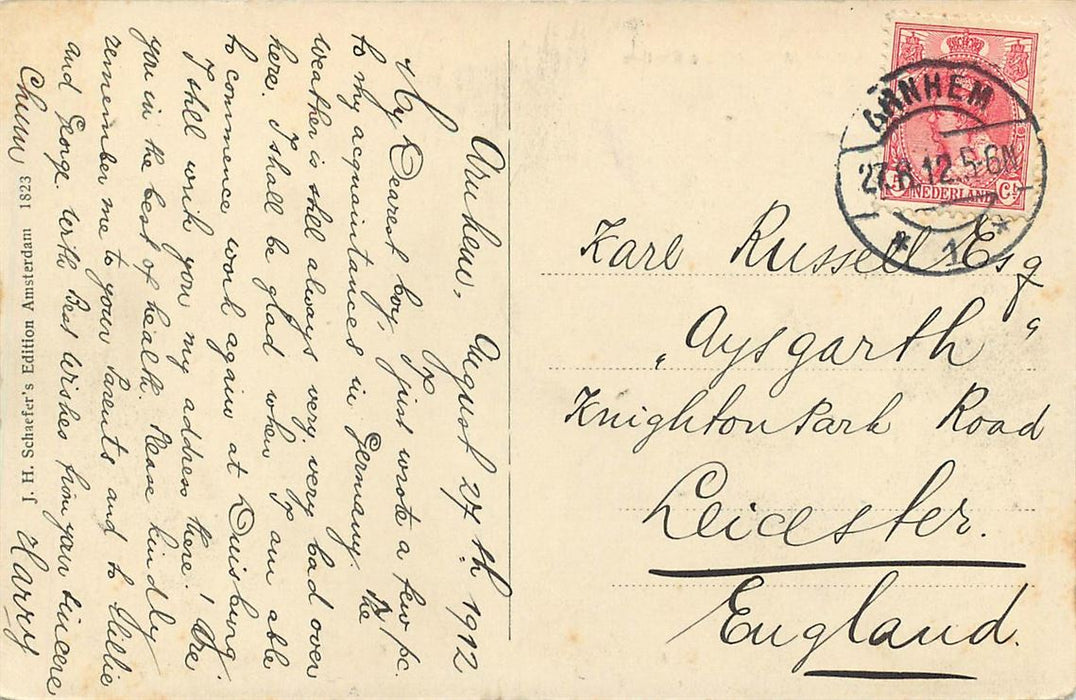 Arnhem, August 27th 1912
My Dearest boy, I just wrote a few pc.
to my acquaintances in Germany. The
weather is still always very, very bad over
here. I shall be glad when I am able
to commence work again at Duisburg
I shall write you my address there! Wie
you in the best of health. Please kindly
remember me to your Parents and to Willie
and George. With Best Wishes from your sincere
Chum Harry
J. H. Schaefer's Edition Amsterdam 1823
ARNHEM
27.8.12.5-6N
* 1 *
5 NEDERLAND Ct
Karl Russell Esq
„Aysgarth“
Knighton Park Road
Leicester.
England.